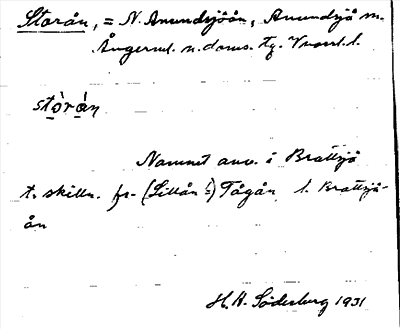 Storån, = N. Anundsjöån, Anundsjö sn.
Ångerml. n. doms. tg. Vnorrl. l.
stò̱rá̱n
Namnet anv. i Brattsjö
t. skilln. fr. (Lillån =) Tågån l. Brattsjö-
ån
H. H. Söderberg 1931